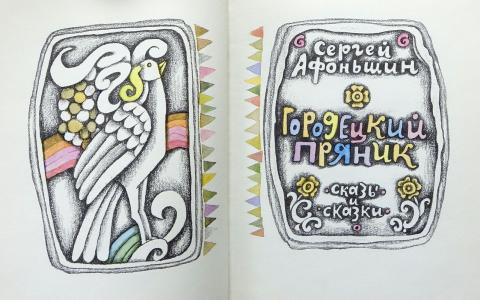 Сергей
Афоньшин
Городецкий
пряник
· сказы ·
и
· сказки ·